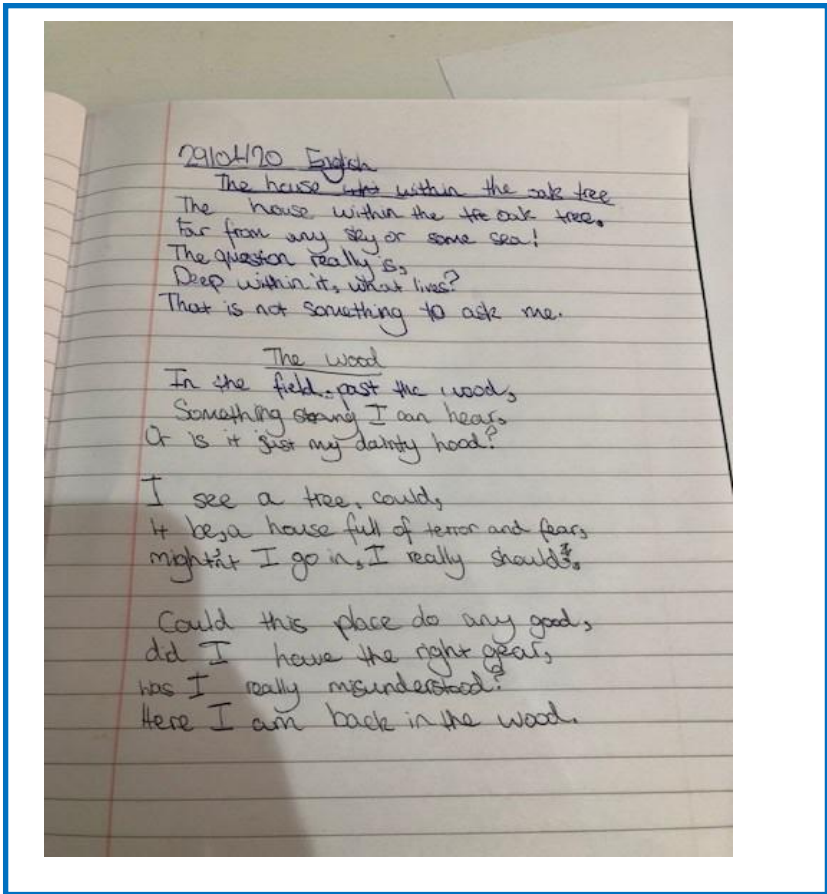 29/04/20 English
The house within the oak tree
The house within the oak tree.
Far from any sky or some sea!
The question really is,
Deep within it, what lives?
That is not something to ask me.
The wood
In the field past the wood,
Something strang I can hear,
Or is it just my dainty hood?
I see a tree, could,
it be, a house full of terror and fear,
might'nt I go in, I really should.
Could this place do any good,
did I have the right gear,
was I really misunderstood?
Here I am back in the wood.